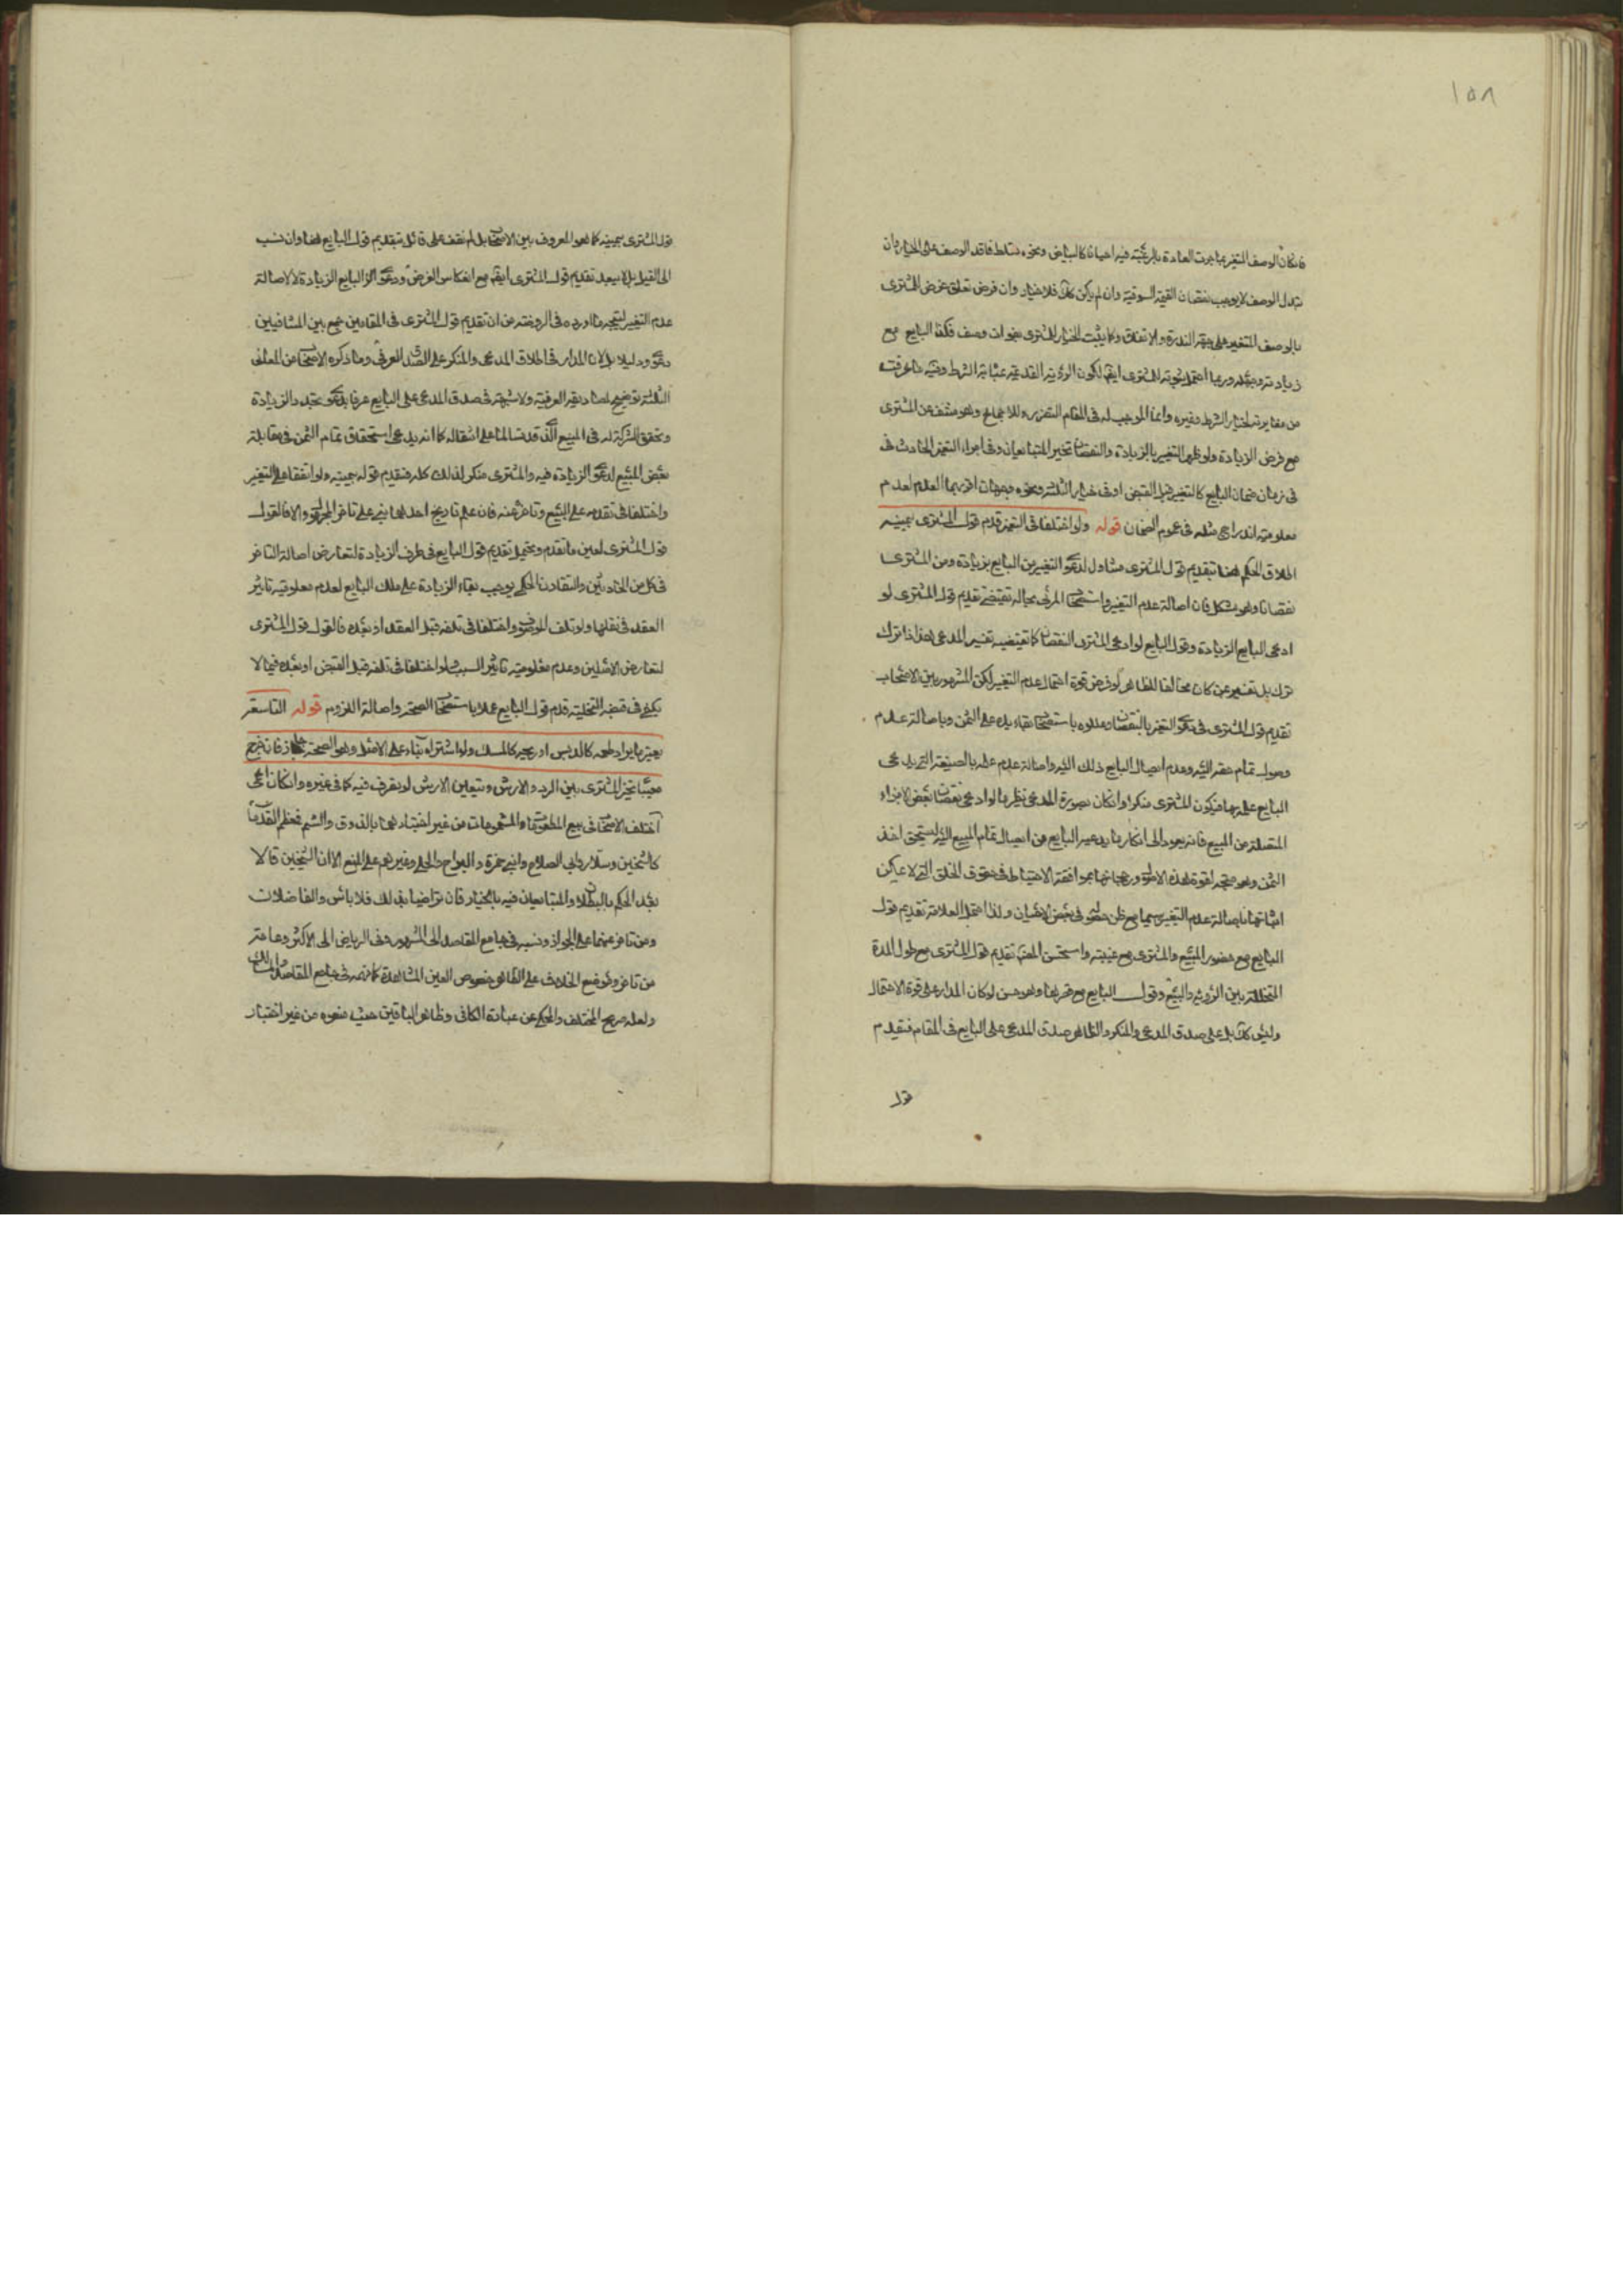 ١٥٨
فانكان الوصف المتغير مما جرت العادة بالرغبة فيه احيانا كالبياض ونحوه تسلط فاقد الوصف على الخيار وان
تبدل الوصف لا يوجب نقصان القيمة السوقية وان لم يكن كك فلا خيار وان فرض تعلق غرض المشترى
بالوصف المتغير على جهة الندرة والاتفاق وكما يثبت الخيار للمشترى بفوات وصف فكذا البايع مع
زيادته وربما احتمل ثبوته للمشترى ايض لكون الرؤية القديمة بمثابة الشرط وفيه ما عرفت
من مغايرته لخيار الشرط وغيره وانما الموجب له فى المقام الضرر وللاجماع وهو منتف عن المشترى
مع فرض الزيادة ولو ظهر التغير بالزيادة والنقصان تخير المتبايعان وفى اجراء التغير الحادث فى
فى زمان ضمان البايع كالتغير قبل القبض او فى خيار الثلثة ونحوه وجهان اقربهما العدم لعدم
معلومية اندراج مثله فى عموم الضمان قوله ولو اختلفا فى التغير قدم قول المشترى بيمينه
اطلاق الحكم هنا بتقديم قول المشترى متناول لدعوى التغير من البايع بزيادة ومن المشترى
نقصانا وهو مشكل فان اصالة عدم التغير واستصحاب المرئى بحاله تقتضى تقديم قول المشترى لو
ادعى البايع الزيادة وقول البايع لو ادعى المشترى النقصان كما تقتضيه تفسير المدعى بمن اذا ترك
ترك بل تفسيره بمن كان مخالفا للظاهر لو فرض قوة احتمال عدم التغير لكن المشهور بين الاصحاب
تقديم قول المشترى فى دعوى التغير بالنقصان وعللوه باستصحاب بقاء يده على الثمن وباصالة عدم
وصول تمام حقه اليه وعدم ايصال البايع ذلك اليه واصالة عدم علمه بالصفة التى يدعى
البايع علمه بها فيكون المشترى منكرا وانكان بصورة المدعى نظير ما لو ادعى نقصان بعض الاجزاء
المتصلة من المبيع فانه يعود الى انكار ما يدعيه البايع من ايصال تمام المبيع اليه ليستحق اخذ
الثمن وهو متجه لقوة هذه الاصول ورجحانها بموافقة الاحتياط فى حقوق الخلق التى لا يمكن
اثباتها باصالة عدم التغير سيما مع ظن حصوله فى بعض الاحيان ولذا احتمل العلامة تقديم قول
البايع مع حضور المبيع والمشترى مع غيبته واستحسن المص تقديم قول المشترى مع طول المدة
المتخللة بين الرؤية والبيع وقول البايع مع قصرها وهو حسن لو كان المدار على قوة الاحتمال
وليس كك بل على صدق المدعى والمنكر والظاهر صدق المدعى على البايع فى المقام فيقدم
قول
قول المشترى بيمينه كما هو المعروف بين الاصحاب بل لم نقف على قائل بتقديم قول البايع هنا وان نسب
الى القيل بل لا يبعد تقديم قول المشترى ايض مع انعكاس الفرض ودعوى البايع الزيادة لا لاصالة
عدم التغير ليتجه ما اورده فى الروضة من ان تقديم قول المشترى فى المقامين جمع بين المتنافيين
دعوى ودليلا بل لان المدار فى اطلاق المدعى والمنكر على الصدق العرفى وما ذكره الاصحاب من المعانى
الثلثة توضيح لمصاديقه العرفية ولا شبهة فى صدق المدعى على البايع عرفا بدعوى تجدد الزيادة
وتحقق الشركة له فى المبيع الذى قد تسالما على انتقاله كما انه يدعى استحقاق تمام الثمن فى مقابلة
بعض المبيع لدعوى الزيادة فيه والمشترى منكر لذلك كله فيقدم قوله بيمينه ولو اتفقا على التغير
واختلفا فى تقدمه على البيع وتاخره عنه فان علم تاريخ احدهما بنى على تاخر المجهول والا فالقول
قول المشترى لعين ما تقدم ويحتمل تقديم قول البايع فى طرف الزيادة لتعارض اصالة التاخر
فى كل من الحادثين والتقارن الحكمى يوجب بقاء الزيادة على ملك البايع لعدم معلومية تاثير
العقد فى نقلها ولو تلف العوض واختلفا فى تلفه قبل العقد او بعده فالقول قول المشترى
لتعارض الاصلين وعدم معلومية تاثير السبب ولو اختلفا فى تلفه قبل القبض او بعده فيما لا
يكفى فى قبضه التخلية قدم قول البايع عملا باستصحاب الصحة واصالة اللزوم قوله التاسعة
يعتبر ما يراد طعمه كالدبس او ريحه كالمسك ولو اشتراه بناء على الاصل وهو الصحة جاز فان خرج
معيبا تخير المشترى بين الرد والارش ويتعين الارش لو تصرف فيه كما فى غيره وانكان اعمى
اختلف الاصحاب فى بيع المطعومات والمشمومات من غير اختبارها بالذوق والشم فمعظم القدماء
كالشيخين وسلار وابى الصلاح وابنى حمزة والبراج والحلى وغيرهم على المنع الا ان الشيخين قالا
بعد الحكم بالبطلان والمتبايعان فيه بالخيار فان تراضيا بذلك فلا باس والفاضلان
ومن تاخر عنهما على الجواز ونسبه فى جامع المقاصد الى المشهور وفى الرياض الى الاكثر وعامة
من تاخر وموضع الخلاف على الظاهر خصوص العين المشاهدة كما فى جامع المقاصد والمسالك
ولعله صريح المختلف والمحكى عن عبارة الكافى وظاهر الباقين حيث منعوه من غير اختبار